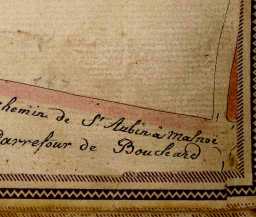 chemin de St. Aubin à Malnoë
Carrefour de Bouchard